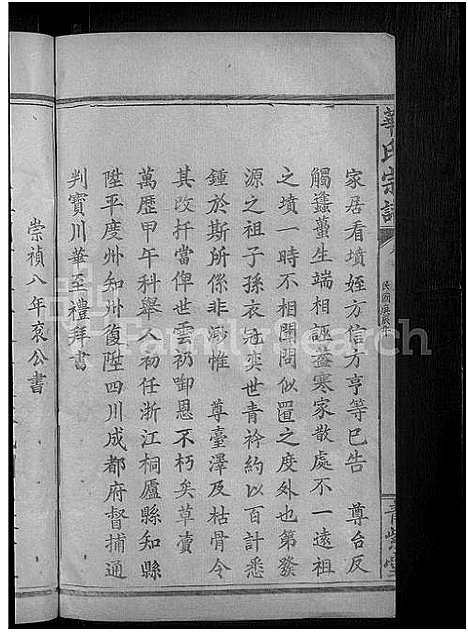 華氏宗譜
家居看墳姪方信方亨等已告　尊台反
觸蠭蠆生端相誣蓋寒家散處不一遠祖
之墳一時不相聞問似置之度外也第發
源之祖子孫衣冠奕世青衿約以百計悉
鍾於斯所係非渺惟　尊臺澤及枯骨令
其改扦當俾世雲礽啣恩不朽矣草瀆
萬歷甲午科舉人初任浙江桐廬縣知縣
陞平度州知州復陞四川成都府督捕通
判寶川華至禮拜書
崇禎八年哀公書
FamilySearch